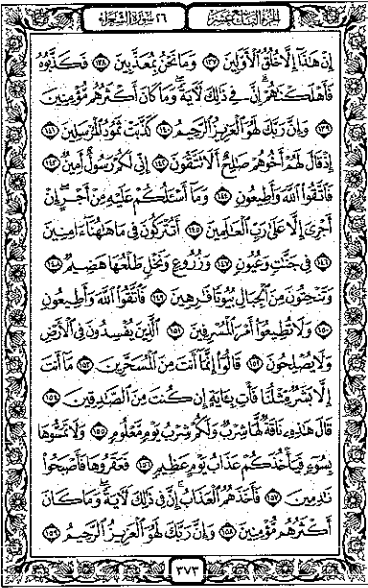 الجزء التاسع عشر
٢٦ سورة الشعراء
إِنْ هَٰذَا إِلَّا خُلُقُ الْأَوَّلِينَ ١٣٧ وَمَا نَحْنُ بِمُعَذَّبِينَ ١٣٨ فَكَذَّبُوهُ
فَأَهْلَكْنَاهُمْ إِنَّ فِي ذَٰلِكَ لَآيَةً وَمَا كَانَ أَكْثَرُهُم مُّؤْمِنِينَ
١٣٩ وَإِنَّ رَبَّكَ لَهُوَ الْعَزِيزُ الرَّحِيمُ ١٤٠ كَذَّبَتْ ثَمُودُ الْمُرْسَلِينَ ١٤١
إِذْ قَالَ لَهُمْ أَخُوهُمْ صَالِحٌ أَلَا تَتَّقُونَ ١٤٢ إِنِّي لَكُمْ رَسُولٌ أَمِينٌ ١٤٣
فَاتَّقُوا اللَّهَ وَأَطِيعُونِ ١٤٤ وَمَا أَسْأَلُكُمْ عَلَيْهِ مِنْ أَجْرٍ إِنْ
أَجْرِيَ إِلَّا عَلَىٰ رَبِّ الْعَالَمِينَ ١٤٥ أَتُتْرَكُونَ فِي مَا هَاهُنَا آمِنِينَ
١٤٦ فِي جَنَّاتٍ وَعُيُونٍ ١٤٧ وَزُرُوعٍ وَنَخْلٍ طَلْعُهَا هَضِيمٌ ١٤٨
وَتَنْحِتُونَ مِنَ الْجِبَالِ بُيُوتًا فَارِهِينَ ١٤٩ فَاتَّقُوا اللَّهَ وَأَطِيعُونِ
١٥٠ وَلَا تُطِيعُوا أَمْرَ الْمُسْرِفِينَ ١٥١ الَّذِينَ يُفْسِدُونَ فِي الْأَرْضِ
وَلَا يُصْلِحُونَ ١٥٢ قَالُوا إِنَّمَا أَنتَ مِنَ الْمُسَحَّرِينَ ١٥٣ مَا أَنتَ
إِلَّا بَشَرٌ مِّثْلُنَا فَأْتِ بِآيَةٍ إِن كُنتَ مِنَ الصَّادِقِينَ ١٥٤
قَالَ هَٰذِهِ نَاقَةٌ لَّهَا شِرْبٌ وَلَكُمْ شِرْبُ يَوْمٍ مَّعْلُومٍ ١٥٥ وَلَا تَمَسُّوهَا
بِسُوءٍ فَيَأْخُذَكُمْ عَذَابُ يَوْمٍ عَظِيمٍ ١٥٦ فَعَقَرُوهَا فَأَصْبَحُوا
نَادِمِينَ ١٥٧ فَأَخَذَهُمُ الْعَذَابُ إِنَّ فِي ذَٰلِكَ لَآيَةً وَمَا كَانَ
أَكْثَرُهُم مُّؤْمِنِينَ ١٥٨ وَإِنَّ رَبَّكَ لَهُوَ الْعَزِيزُ الرَّحِيمُ ١٥٩
٣٧٣